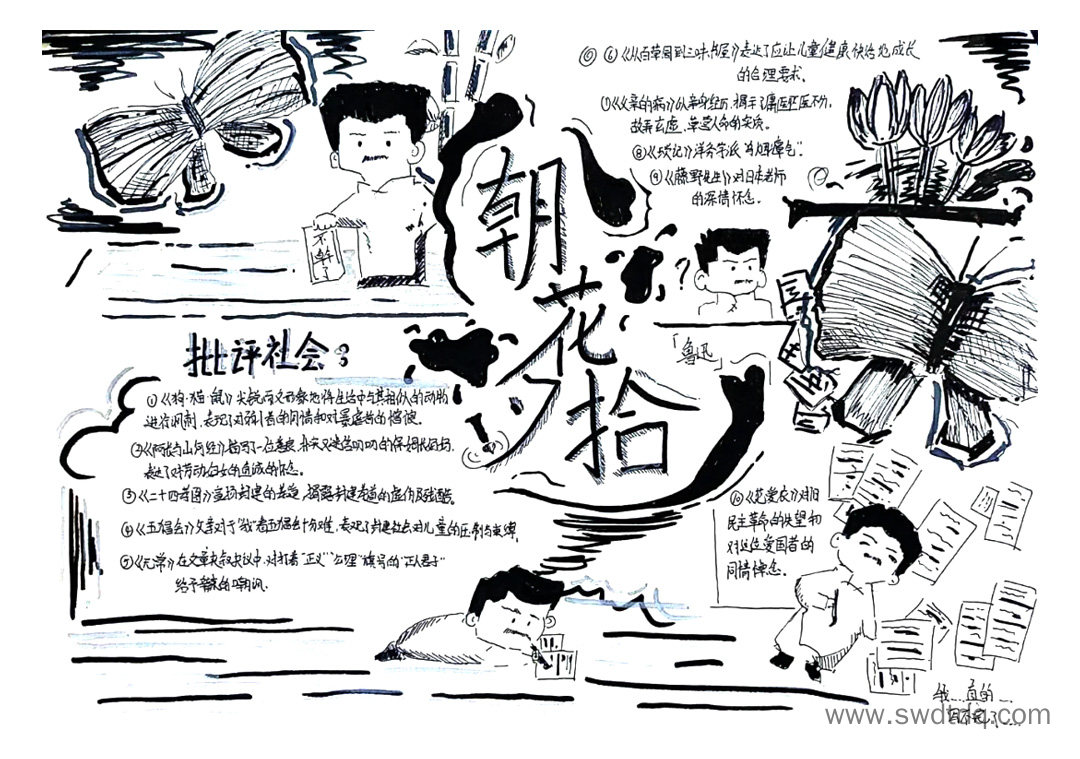 朝花夕拾
⑥《从百草园到三味书屋》表达了应让儿童健康快活地成长
的合理要求。
《父亲的病》从亲身经历,揭示了庸医巫医不分,
故弄玄虚、草菅人命的实质。
⑧《琐记》洋务学派"乌烟瘴气"。
⑨《藤野先生》对日本老师
的深情怀念。
不干了
?
「鲁迅」
批评社会
①《狗·猫·鼠》尖锐而又形象地将生活中与其相似的动物
进行讽刺,表现了对弱小者的同情和对暴虐者的憎恨。
②《阿长与山海经》描写了一位善良、朴实又迷信唠叨的保姆长妈妈,
表达了对劳动妇女的真诚的怀念。
③《二十四孝图》封建的孝道,揭露封建孝道的虚伪及残酷。
④《五猖会》文章对于"我"看五猖会十分难,表现了封建社会对儿童的压制与束缚。
⑤《无常》在文章夹叙夹议中,对打着"正义""公理"旗号的"正人君子"
给予辛辣的嘲讽。
⑩《范爱农》对旧
民主革命的失望和
对这位爱国者的
同情悼念。
我...真的...
www.swdtrlq.com